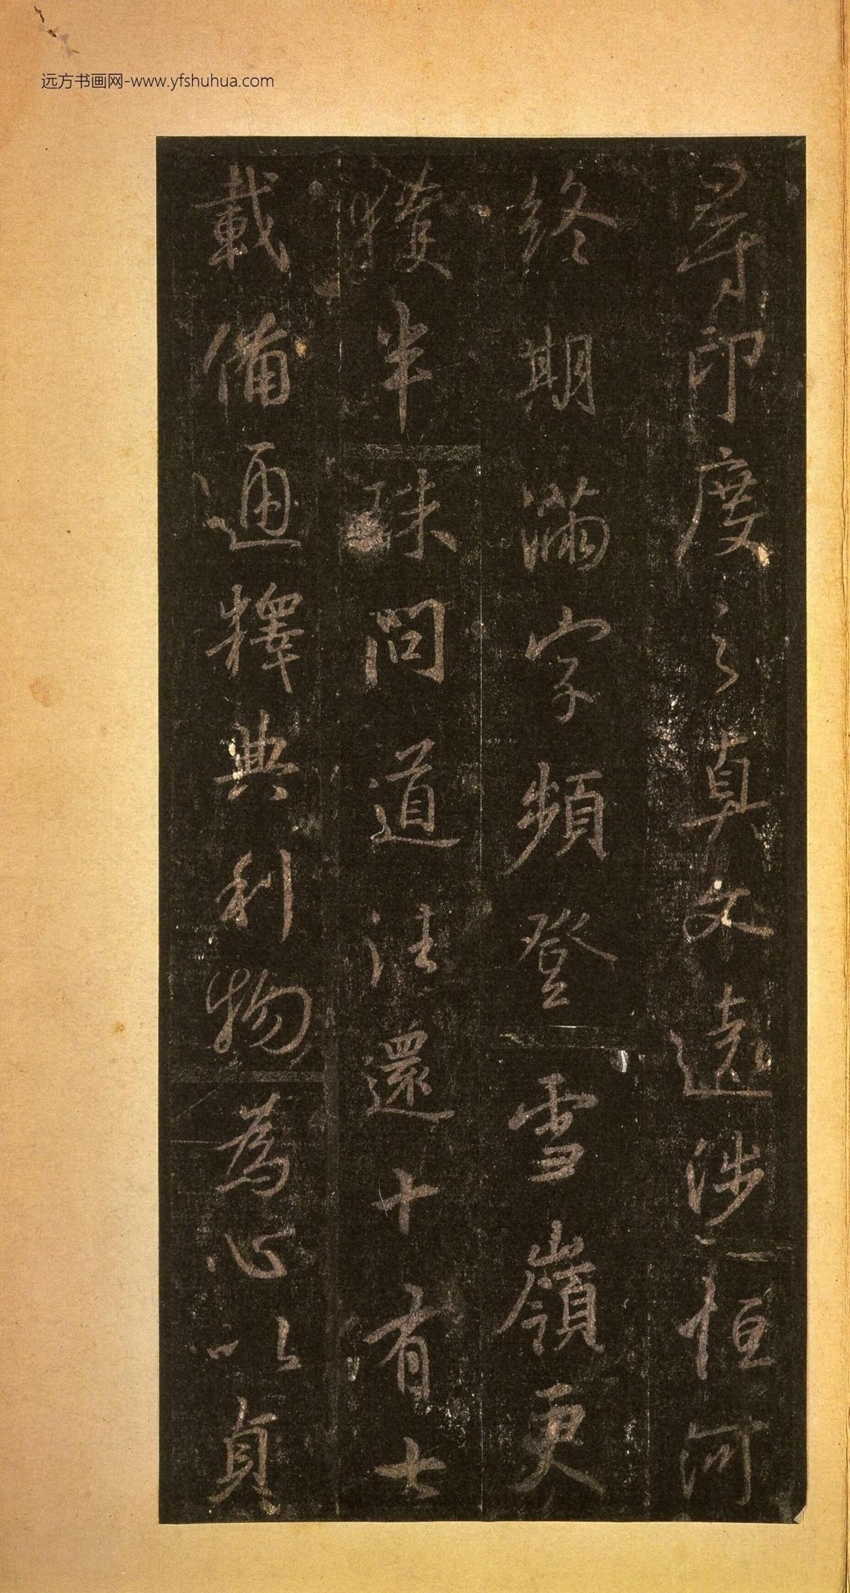 远方书画网-www.yfshuhua.com
尋印度之真文遠涉恒河
終期滿字頻登雪嶺更
獲半珠問道往還十有七
載備通釋典利物為心以貞